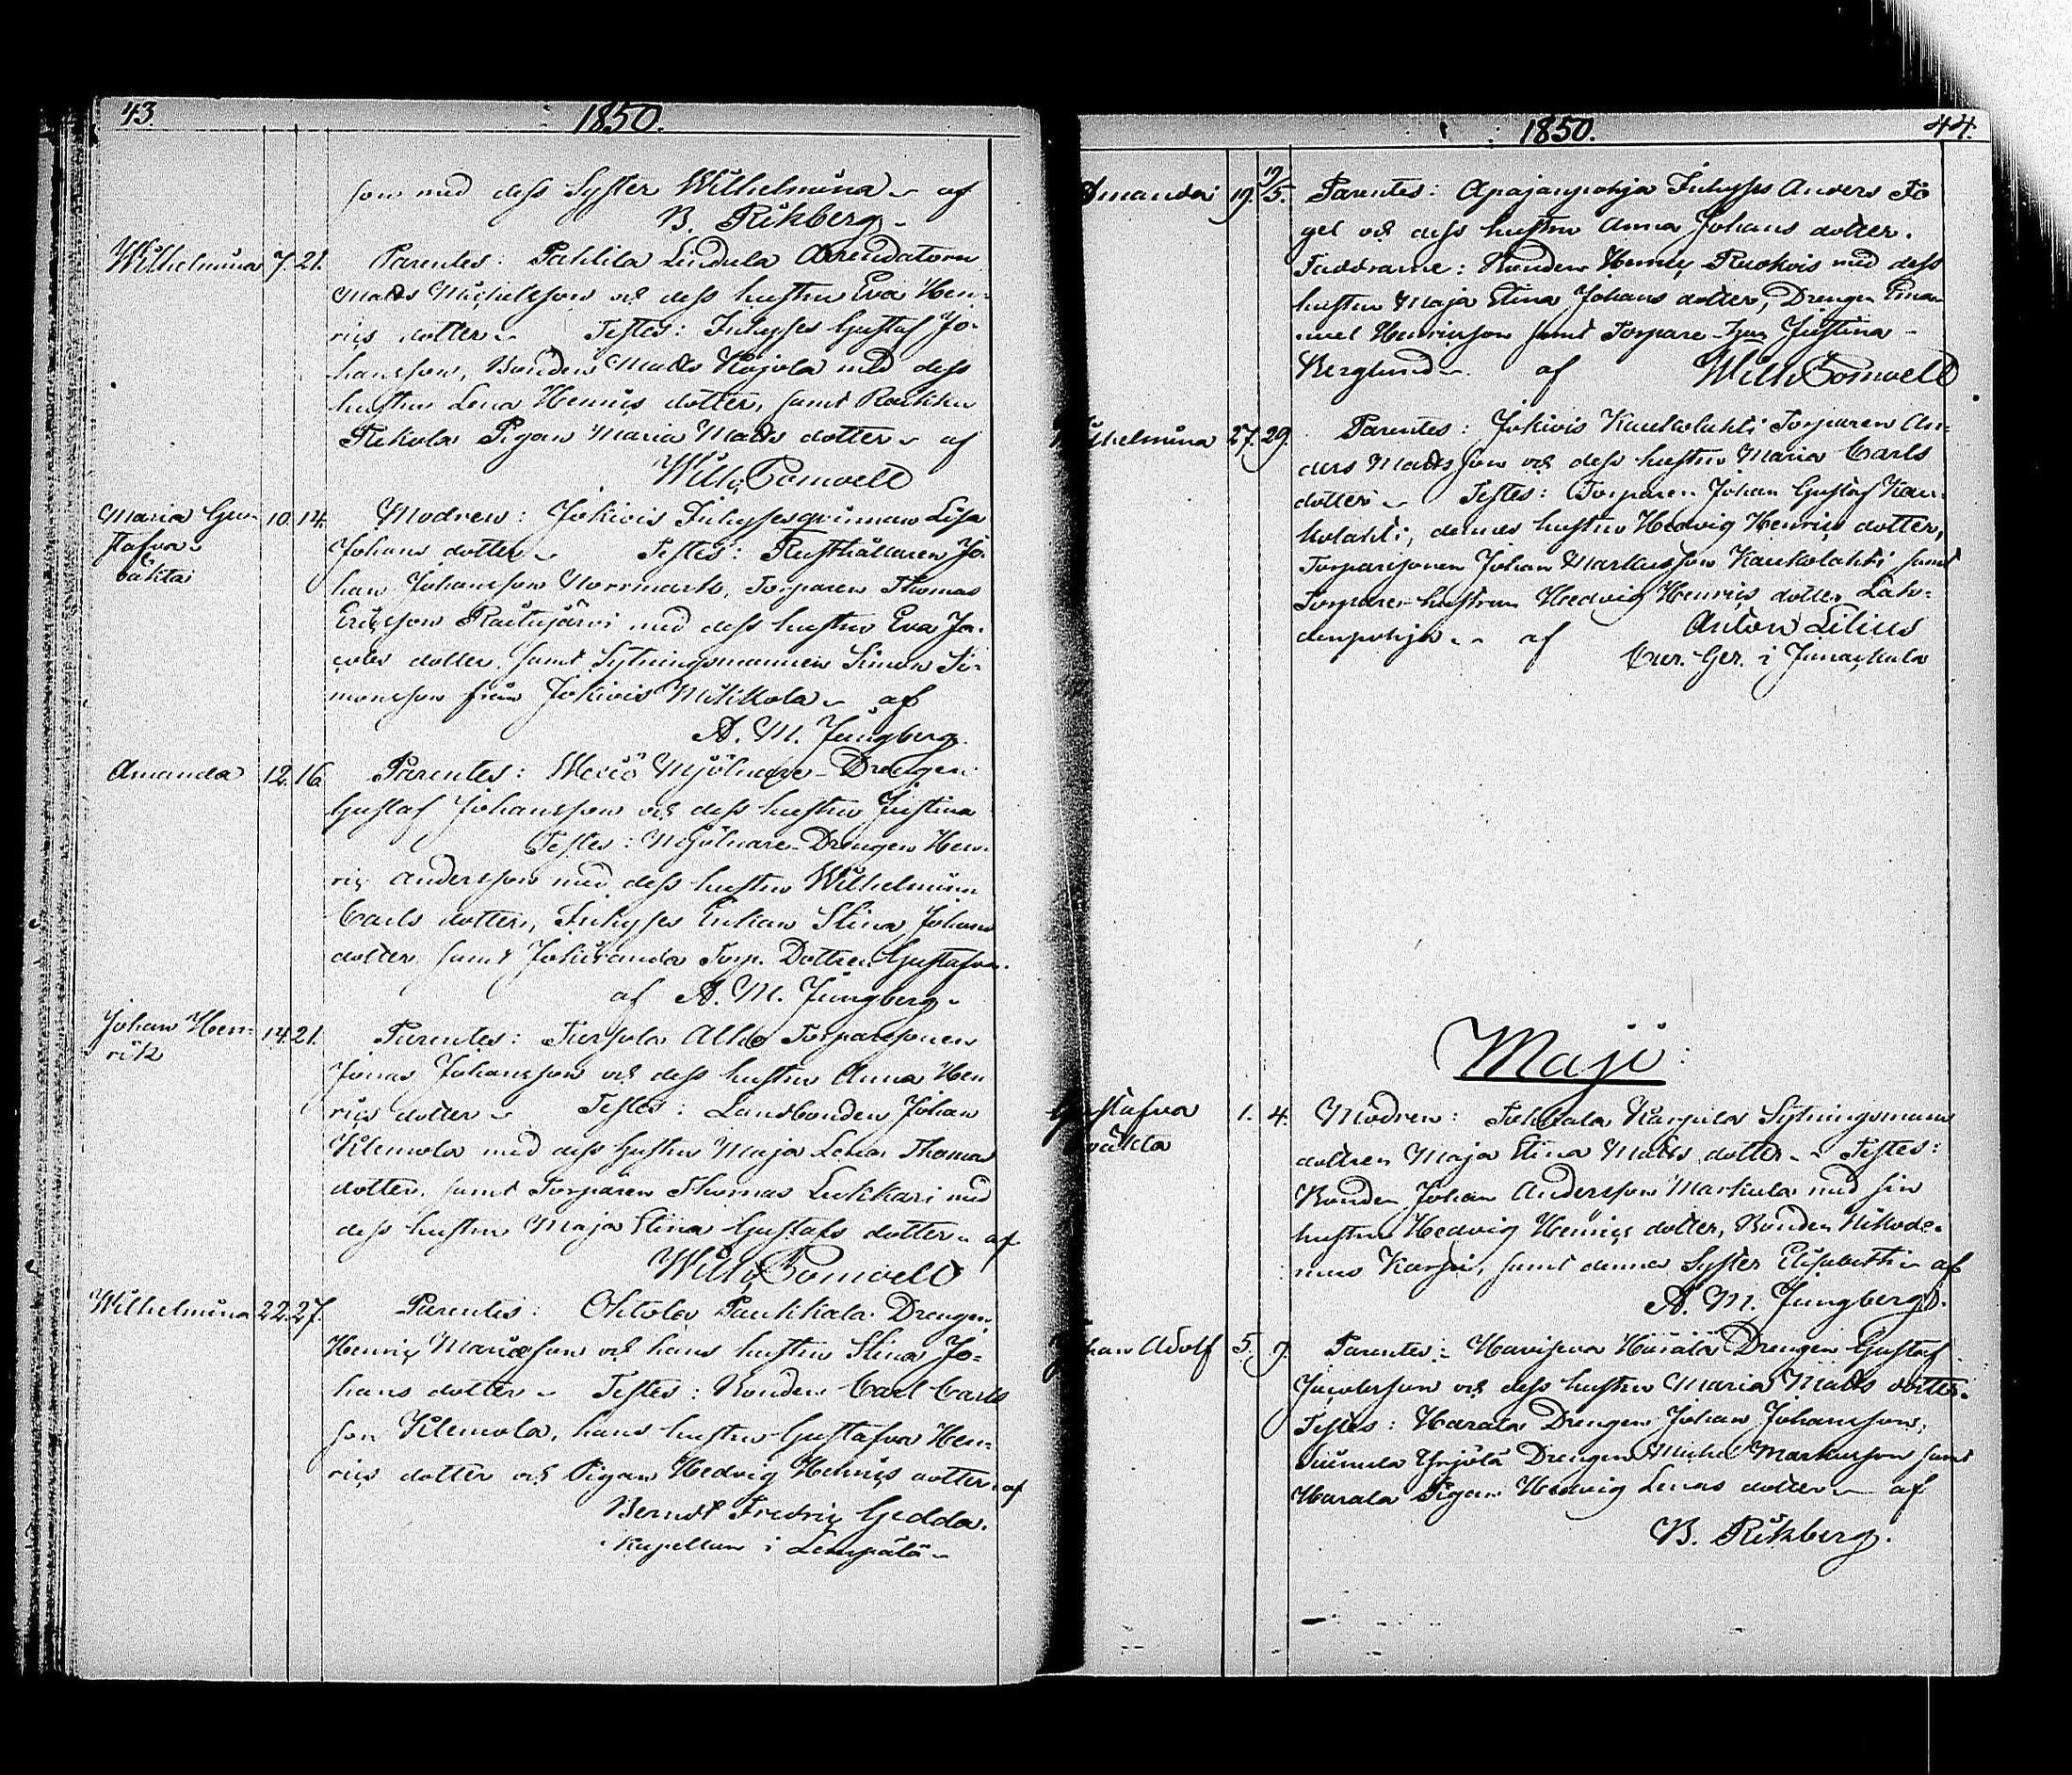 43.
1850.
son med dess Syster Wilhelmina af
B. Rikberg
Wilhelmina 7. 21. Parentes: Lindula Arrendatorn
Matts Michelsson och dess hustru Eva Hen-
rics dotter Testes: Inhyses Gustaf Jo-
hansson, Bonden Matts Kojola med dess
hustru Lena Henrics dotter, samt
Pigan Maria Matts dotter af
Wilh.
Maria Gus- 10. 14. Modren: Jokivis Lisa
tafva Johans dotter Testes: Rusthållaren Jo-
oäkta
han Johansson Norrmark, Torparen Thomas
Ericsson Raitujärvi med dess hustru Eva Ja-
cobs dotter, samt Sytningsmannen Simon Si-
monsson från Jokivis Mikkola af
A. M. Jungberg.
Amanda 12. 16. Parentes: Mjölnare-Drengen
Gustaf Johansson och dess hustru Justina
Testes: Mjölnare-Drengen Hen-
ric Andersson med dess hustru Wilhelmina
Carls dotter, Inhyses Enkan Stina Johans
dotter, samt Torp. Dottren Gustafva
af A. M. Jungberg
Johan Hen- 14. 21. Parentes: Tursola Alho Torparesonen
rik
Jonas Johansson och dess hustru Anna Hen
rics dotter Testes: Landbonden Johan
Klemola med dess hustru Maja Lena Thomas
dotter, samt Torparen Thomas Lukkari med
dess hustru Maja Stina Gustafs dotter af
Wilh.
Wilhelmina 22. 27. Parentes: Ohtola Paukkala Drengen
Henric Mariæson och hans hustru Stina Jo-
hans dotter Testes: Bonden Carl Carls
son Klemola, hans hustru Gustafva Hen-
rics dotter och Pigan Hedvig Henrics dotter af
Berndt Fredric Gedda.
Kapellan i Lempälä
1850.
44.
Amanda 19. 19/5. Parentes: Apajanpohja Inhyses Anders Fo
gel och dess hustru Anna Johans dotter.
Faddrarne: Bonden Henric Ruokois med dess
hustru Maja Stina Johans dotter, Drengen Eman
uel Henricsson samt Torpare Justina
Berglund af Wilh
Wilhelmina 27. 29. Parentes: Jokivis Kaukolahti Torparen An-
ders Mattsson och dess hustru Maria Carls
dotter Testes: Torparen Johan Gustaf Kau-
kolahti, dennes hustru Hedvig Henrics dotter,
Torparesonen Johan Markusson Kaukolahti samt
Torpare hustrun Hedvig Henrics dotter Lah-
denpohja af Anton Lilius
Cur. Ger. i Janackala
Maji:
Gustafva 1. 4. Modren: Karpila Sytningsmans
oäkta
dottren Maja Stina Matts dotter Testes:
Bonden Johan Andersson Markula med sin
hustru Hedvig Henrics dotter, Bonden Nikode-
mus Karpi, samt dennes Syster Elisabeth af
A. M. Jungberg.
Johan Adolf 5. 9. Parentes: Harala Drengen Gustaf
Jacobsson och dess hustru Maria Matts dotter.
Testes: Harala Drengen Johan Johansson,
Yrjölä Drengen Michel Markusson samt
Harala Pigan Hedvig Lenas dotter af
B. Rikberg.